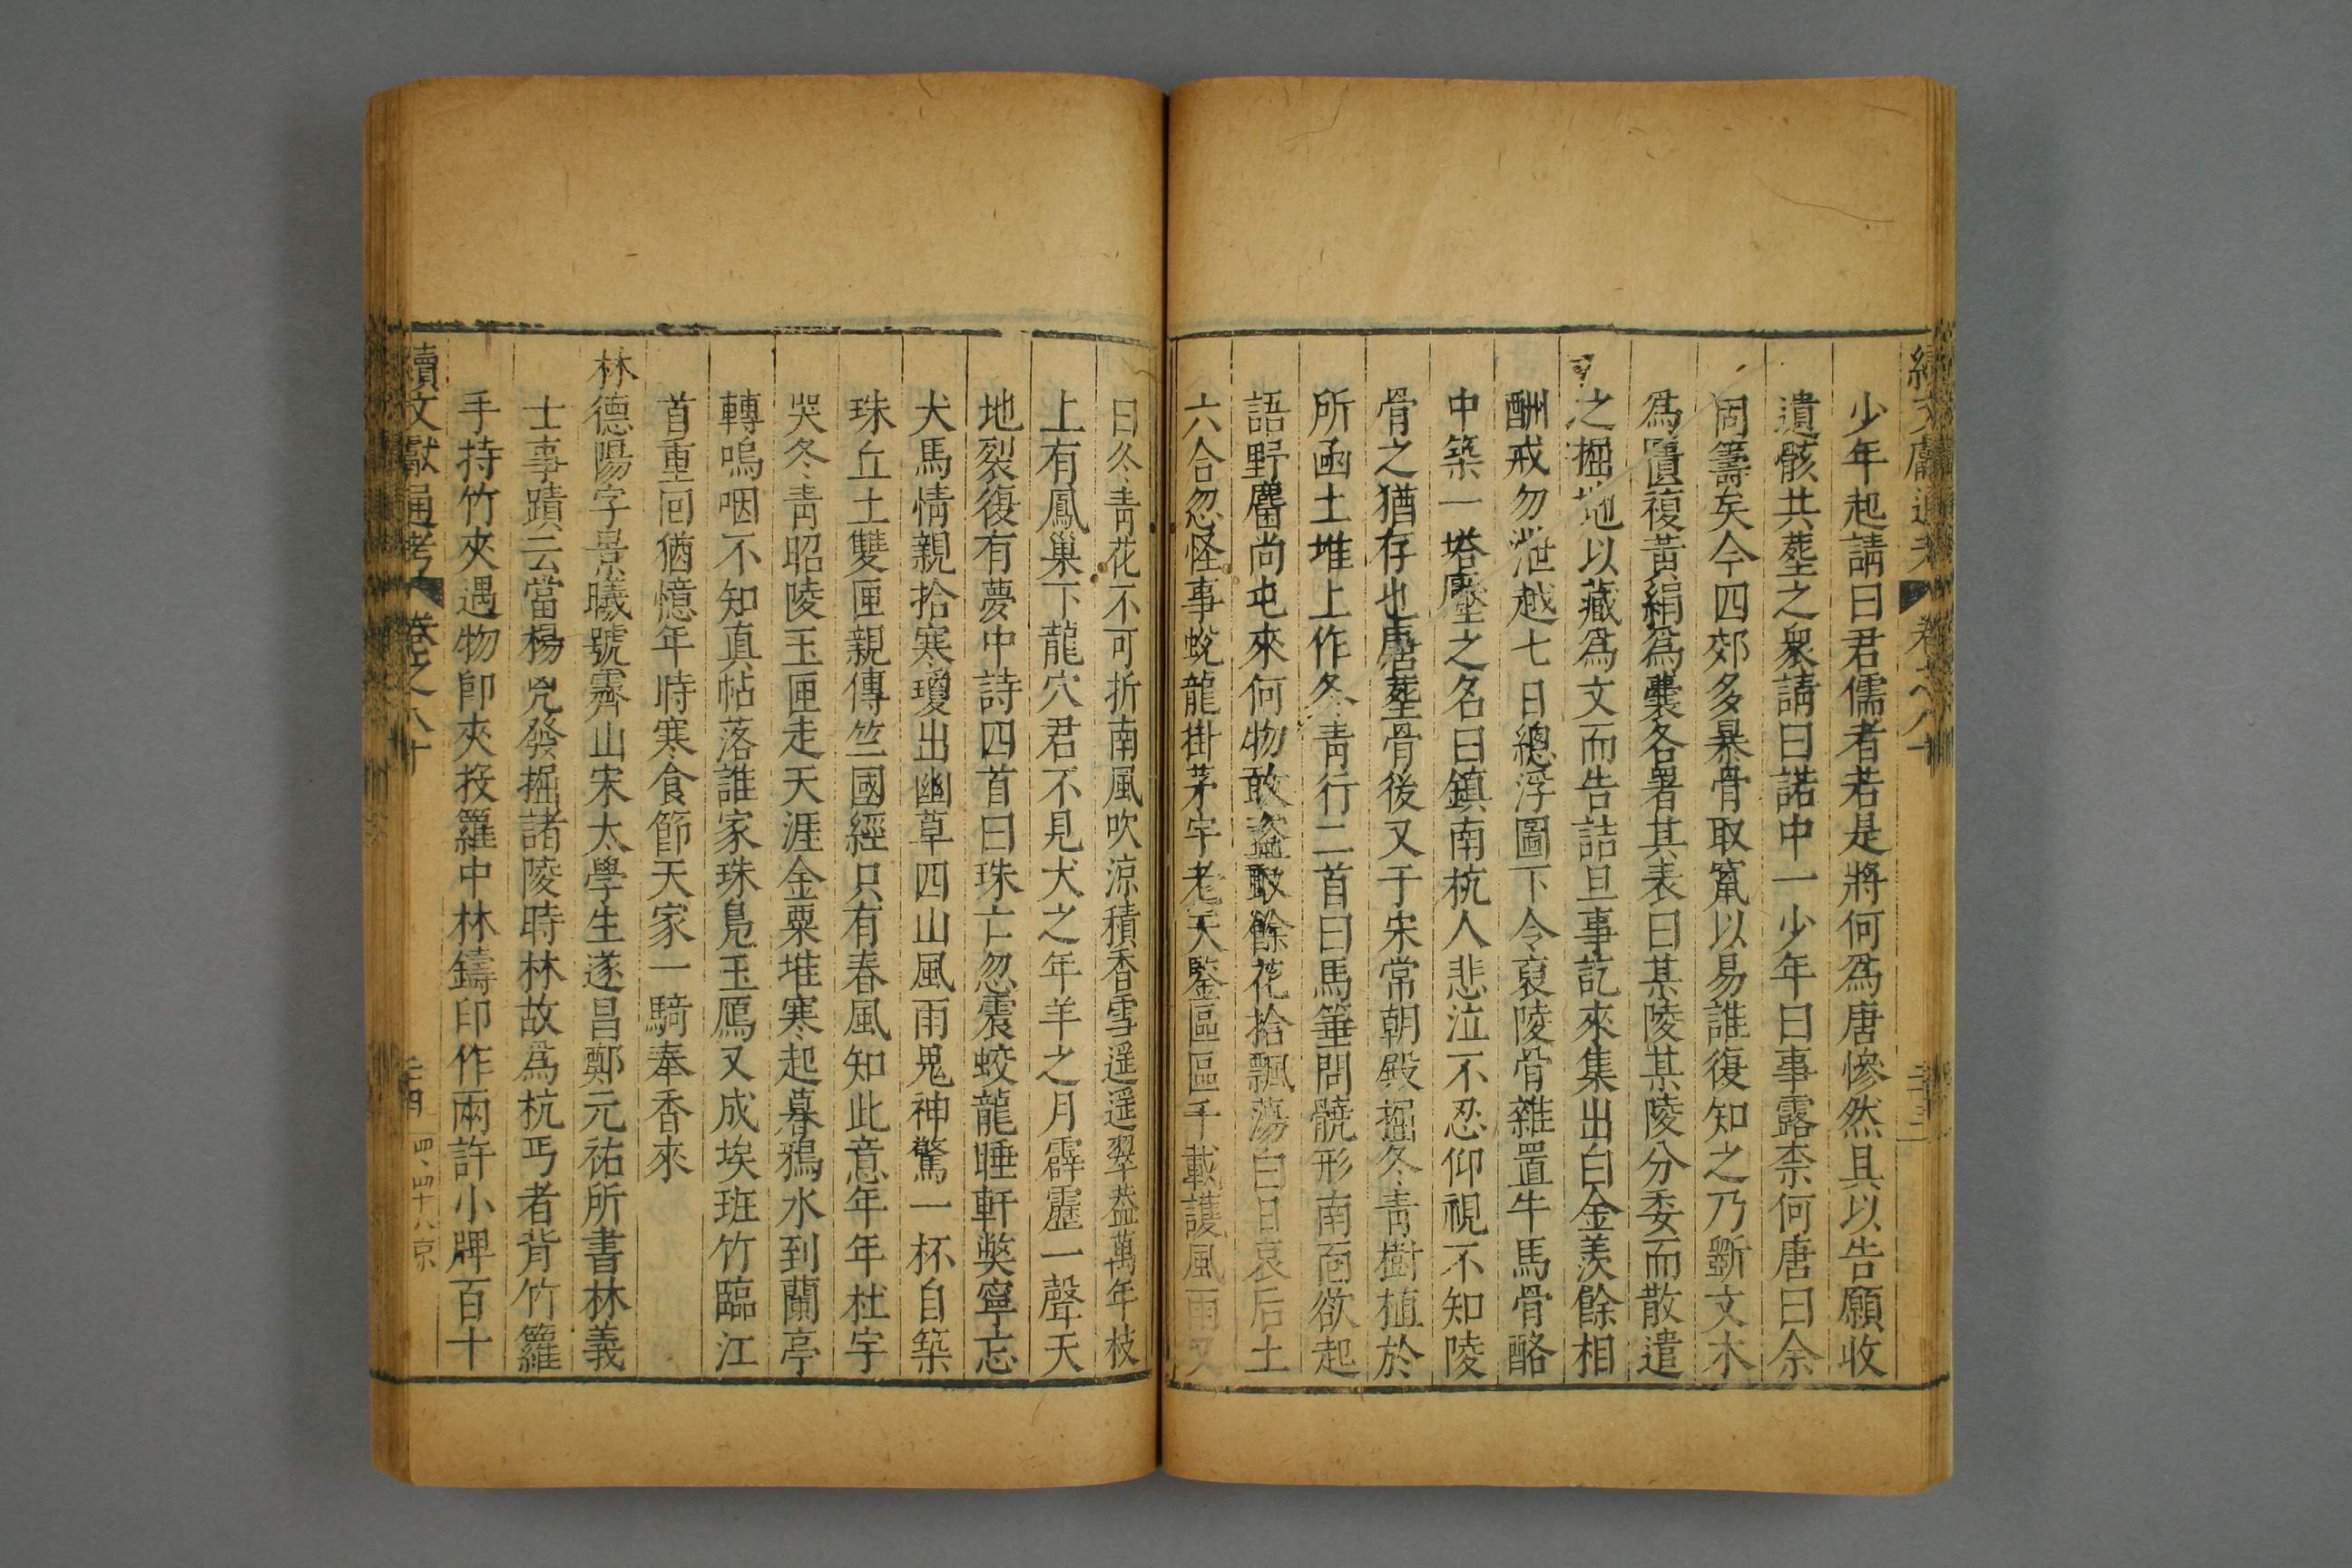 續文獻通考 卷之八十 二十三
少年起請曰君儒者若是將何爲唐慘然具以告願收
遺骸共葬之衆請曰諾中一少年曰事露柰何唐曰余
固籌矣今四郊多暴骨取竄以易誰復知之乃斲文木
爲匱複黃絹爲囊各署其表曰某陵某陵分委而散遣
之掘地以藏爲文而告詰旦事訖來集出白金羨餘相
酬戒勿泄越七日總浮圖下令裒陵骨雜置牛馬骨骼
中築一塔壓之名曰鎮南杭人悲泣不忍仰視不知陵
骨之猶存也唐葬骨後又于宋常朝殿掘冬青樹植於
所函土堆上作冬青行二首曰馬箠問髐形南面欲起
語野麕尚屯來何物敢盜取餘花拾飄蕩白日哀后土
六合忽怪事蛻龍掛茅宇老天鑒區區千載護風雨又
曰冬青花不可折南風吹涼積香雪遥遥翠葢萬年枝
上有鳳巢下龍穴君不見犬之年羊之月霹靂一聲天
地裂復有夢中詩四首曰珠亡忽震蛟龍睡軒獘寧忘
犬馬情親拾寒瓊出幽草四山風雨鬼神驚一杯自築
珠丘土雙匣親傳竺國經只有春風知此意年年杜宇
哭冬青昭陵玉匣走天涯金粟堆寒起暮鴉水到蘭亭
轉嗚咽不知真帖落誰家珠鳧玉鴈又成埃班竹臨江
首重回猶憶年時寒食節天家一騎奉香來
林德陽字景曦號霽山宋太學生遂昌鄭元祐所書林義
士事蹟云當楊兇發掘諸陵時林故爲杭丐者背竹籮
手持竹夾遇物卽夾投籮中林鑄印作兩許小牌百十
續文獻通考 卷之八十 二十四 四、四十八京